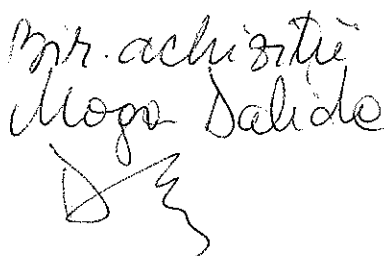 Bir. achizitii
Moga Dalida